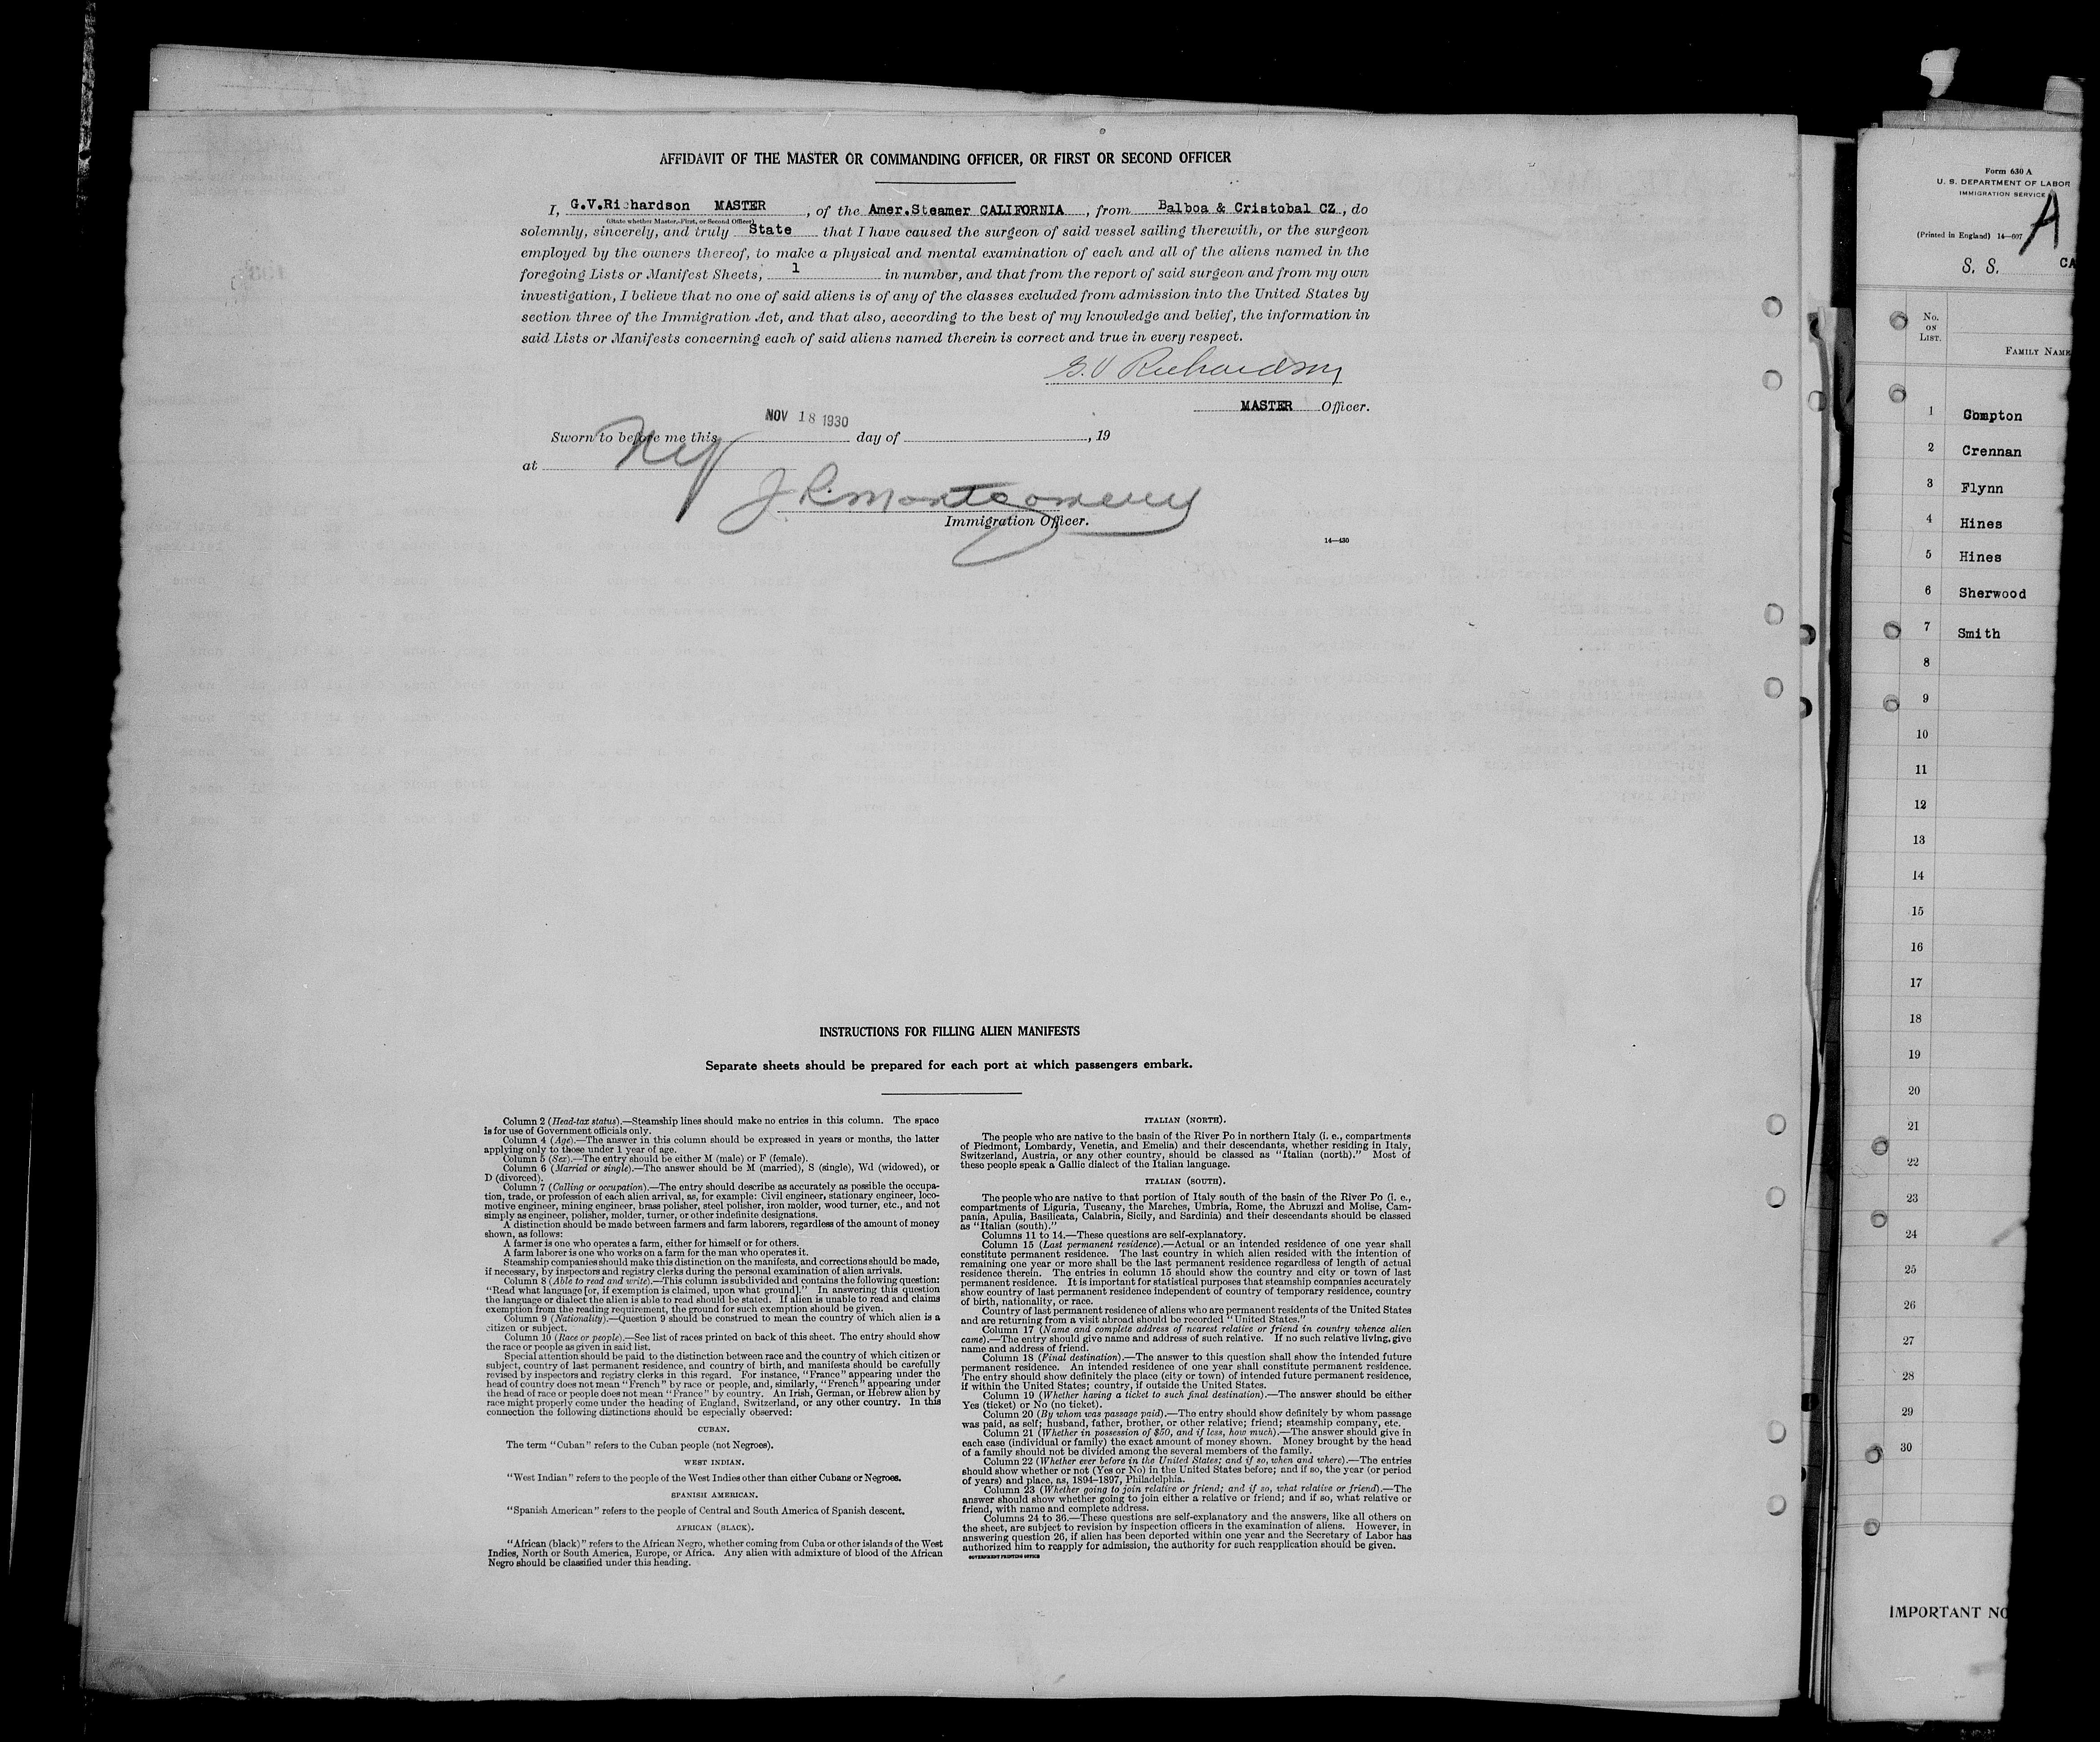 AFFIDAVIT OF THE MASTER OR COMMANDING OFFICER, OR FIRST OR SECOND OFFICER
I, G.V.Richardson MASTER, of the Amer.Steamer CALIFORNIA, from Balboa & Cristobal CZ, do
(State whether Master, First, or Second Officer)
solemnly, sincerely, and truly State that I have caused the surgeon of said vessel sailing therewith, or the surgeon
employed by the owners thereof, to make a physical and mental examination of each and all of the aliens named in the
foregoing Lists or Manifest Sheets, 1 in number, and that from the report of said surgeon and from my own
investigation, I believe that no one of said aliens is of any of the classes excluded from admission into the United States by
section three of the Immigration Act, and that also, according to the best of my knowledge and belief, the information in
said Lists or Manifests concerning each of said aliens named therein is correct and true in every respect.
G.V Richardson
MASTER Officer.
NOV 18 1930
Sworn to before me this day of , 19
at NY
J R Montgomery
Immigration Officer.
14—430
INSTRUCTIONS FOR FILLING ALIEN MANIFESTS
Separate sheets should be prepared for each port at which passengers embark.
Column 2 (Head-tax status).—Steamship lines should make no entries in this column. The space
is for use of Government officials only.
Column 4 (Age).—The answer in this column should be expressed in years or months, the latter
applying only to those under 1 year of age.
Column 5 (Sex).—The entry should be either M (male) or F (female).
Column 6 (Married or single).—The answer should be M (married), S (single), Wd (widowed), or
D (divorced).
Column 7 (Calling or occupation).—The entry should describe as accurately as possible the occupa-
tion, trade, or profession of each alien arrival, as, for example: Civil engineer, stationary engineer, loco-
motive engineer, mining engineer, brass polisher, steel polisher, iron molder, wood turner, etc., and not
simply as engineer, polisher, molder, turner, or other indefinite designations.
A distinction should be made between farmers and farm laborers, regardless of the amount of money
shown, as follows:
A farmer is one who operates a farm, either for himself or for others.
A farm laborer is one who works on a farm for the man who operates it.
Steamship companies should make this distinction on the manifests, and corrections should be made,
if necessary, by inspectors and registry clerks during the personal examination of alien arrivals.
Column 8 (Able to read and write).—This column is subdivided and contains the following question:
"Read what language [or, if exemption is claimed, upon what ground]." In answering this question
the language or dialect the alien is able to read should be stated. If alien is unable to read and claims
exemption from the reading requirement, the ground for such exemption should be given.
Column 9 (Nationality).—Question 9 should be construed to mean the country of which alien is a
citizen or subject.
Column 10 (Race or people).—See list of races printed on back of this sheet. The entry should show
the race or people as given in said list.
Special attention should be paid to the distinction between race and the country of which citizen or
subject, country of last permanent residence, and country of birth, and manifests should be carefully
revised by inspectors and registry clerks in this regard. For instance, "France" appearing under the
head of country does not mean "French" by race or people, and, similarly, "French" appearing under
the head of race or people does not mean "France" by country. An Irish, German, or Hebrew alien by
race might properly come under the heading of England, Switzerland, or any other country. In this
connection the following distinctions should be especially observed:
CUBAN.
The term "Cuban" refers to the Cuban people (not Negroes).
WEST INDIAN.
"West Indian" refers to the people of the West Indies other than either Cubans or Negroes.
SPANISH AMERICAN.
"Spanish American" refers to the people of Central and South America of Spanish descent.
AFRICAN (BLACK).
"African (black)" refers to the African Negro, whether coming from Cuba or other islands of the West
Indies, North or South America, Europe, or Africa. Any alien with admixture of blood of the African
Negro should be classified under this heading.
ITALIAN (NORTH).
The people who are native to the basin of the River Po in northern Italy (i. e., compartments
of Piedmont, Lombardy, Venetia, and Emelia) and their descendants, whether residing in Italy,
Switzerland, Austria, or any other country, should be classed as "Italian (north)." Most of
these people speak a Gallic dialect of the Italian language.
ITALIAN (SOUTH).
The people who are native to that portion of Italy south of the basin of the River Po (i. e.,
compartments of Liguria, Tuscany, the Marches, Umbria, Rome, the Abruzzi and Molise, Cam-
pania, Apulia, Basilicata, Calabria, Sicily, and Sardinia) and their descendants should be classed
as "Italian (south)."
Columns 11 to 14.—These questions are self-explanatory.
Column 15 (Last permanent residence).—Actual or an intended residence of one year shall
constitute permanent residence. The last country in which alien resided with the intention of
remaining one year or more shall be the last permanent residence regardless of length of actual
residence therein. The entries in column 15 should show the country and city or town of last
permanent residence. It is important for statistical purposes that steamship companies accurately
show country of last permanent residence independent of country of temporary residence, country
of birth, nationality, or race.
Country of last permanent residence of aliens who are permanent residents of the United States
and are returning from a visit abroad should be recorded "United States."
Column 17 (Name and complete address of nearest relative or friend in country whence alien
came).—The entry should give name and address of such relative. If no such relative living, give
name and address of friend.
Column 18 (Final destination).—The answer to this question shall show the intended future
permanent residence. An intended residence of one year shall constitute permanent residence.
The entry should show definitely the place (city or town) of intended future permanent residence,
if within the United States; country, if outside the United States.
Column 19 (Whether having a ticket to such final destination).—The answer should be either
Yes (ticket) or No (no ticket).
Column 20 (By whom was passage paid).—The entry should show definitely by whom passage
was paid, as self; husband, father, brother, or other relative; friend; steamship company, etc.
Column 21 (Whether in possession of $50, and if less, how much).—The answer should give in
each case (individual or family) the exact amount of money shown. Money brought by the head
of a family should not be divided among the several members of the family.
Column 22 (Whether ever before in the United States; and if so, when and where).—The entries
should show whether or not (Yes or No) in the United States before; and if so, the year (or period
of years) and place, as, 1894-1897, Philadelphia.
Column 23 (Whether going to join relative or friend; and if so, what relative or friend).—The
answer should show whether going to join either a relative or friend; and if so, what relative or
friend, with name and complete address.
Columns 24 to 36.—These questions are self-explanatory and the answers, like all others on
the sheet, are subject to revision by inspection officers in the examination of aliens. However, in
answering question 26, if alien has been deported within one year and the Secretary of Labor has
authorized him to reapply for admission, the authority for such reapplication should be given.
GOVERNMENT PRINTING OFFICE
Form 630 A
U. S. DEPARTMENT OF LABOR
IMMIGRATION SERVICE
A
(Printed in England) 14—607
S. S. CA
No. ON LIST.
FAMILY NAME
1 Compton
2 Crennan
3 Flynn
4 Hines
5 Hines
6 Sherwood
7 Smith
8
9
10
11
12
13
14
15
16
17
18
19
20
21
22
23
24
25
26
27
28
29
30
IMPORTANT NO